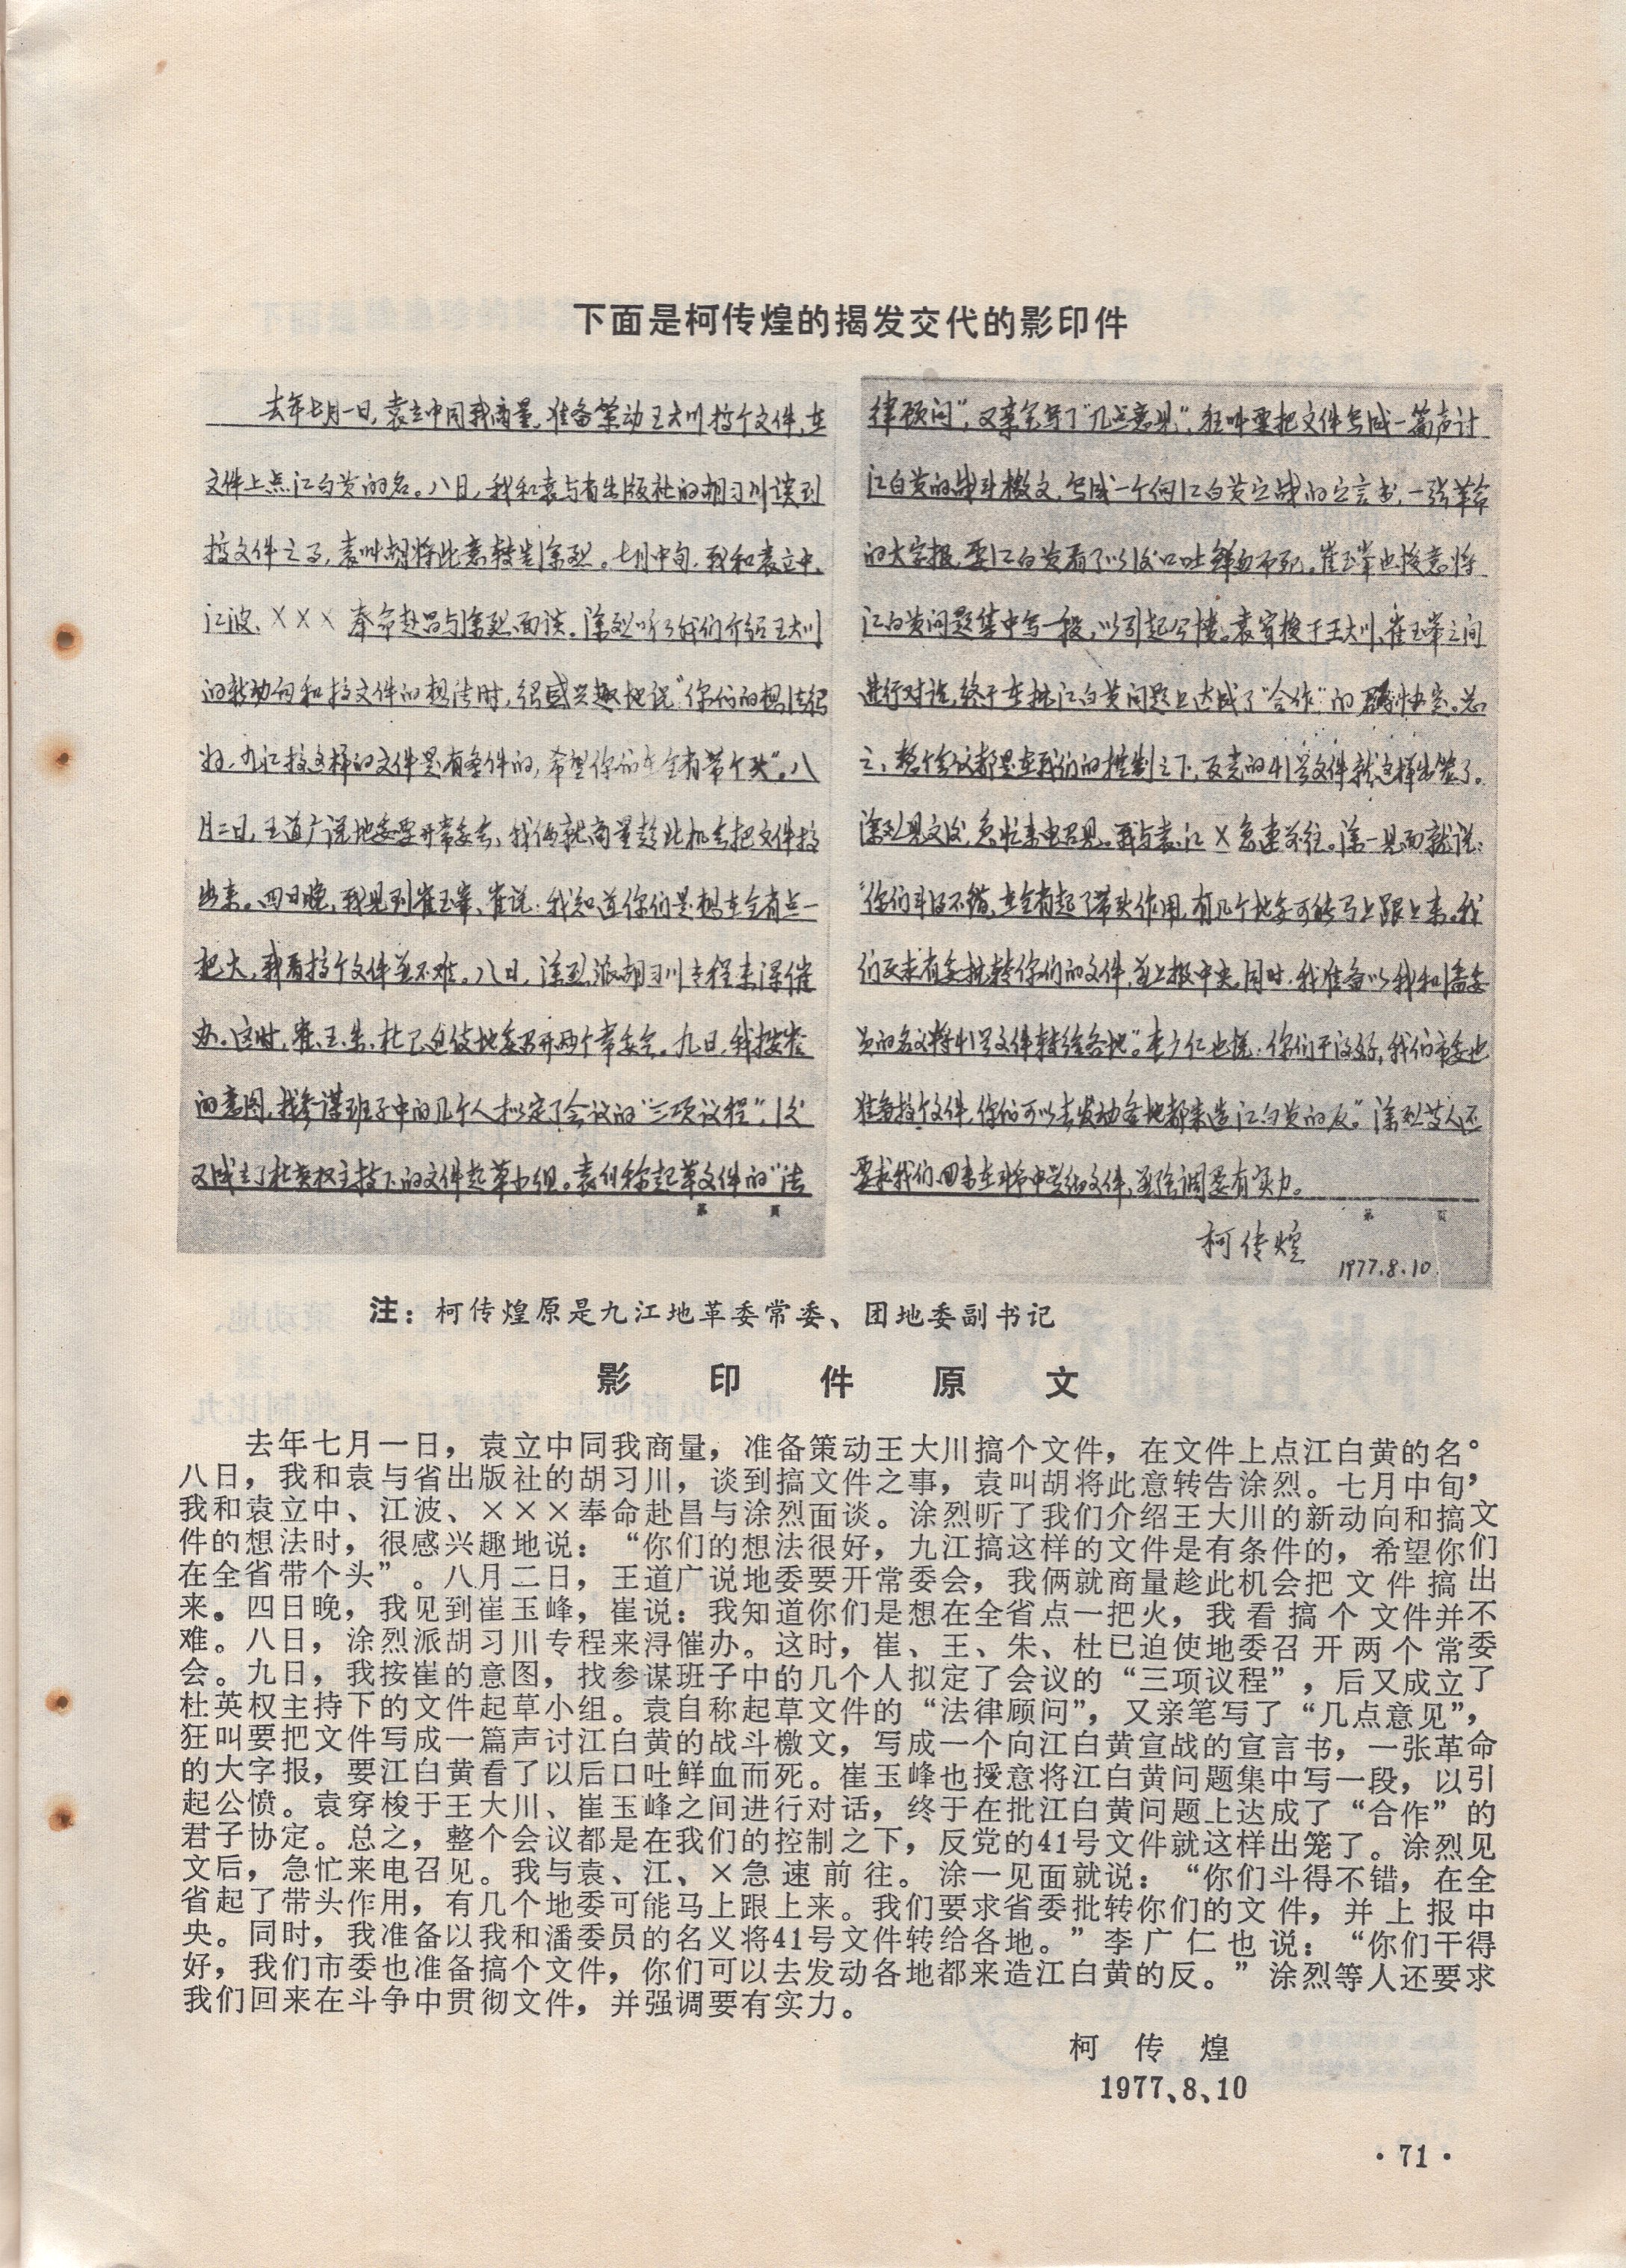 下面是柯传煌的揭发交代的影印件
去年七月一日，袁立中同我商量，准备策动王大川搞个文件，在
文件上点江白黄的名。八日，我和袁与省出版社的胡习川谈到
搞文件之事，袁叫胡将此意转告涂烈。七月中旬，我和袁立中、
江波、×××奉命赴昌与涂烈面谈。涂烈听了我们介绍王大川
的新动向和搞文件的想法时，很感兴趣地说“你们的想法很
好，九江搞这样的文件是有条件的，希望你们在全省带个头”。八
月二日，王道广说地委要开常委会，我俩就商量趁此机会把文件搞
出来。四日晚，我见到崔玉峯，崔说：我知道你们是想在全省点一
把火，我看搞个文件并不难。八日，涂烈派胡习川专程来浔催
办。这时，崔、王、朱、杜已迫使地委召开两个常委会。九日，我按崔
的意图，找参谋班子中的几个人拟定了会议的“三项议程”，后
又成立了杜英权主持下的文件起草小组。袁自称起草文件的“法
第 页
律顾问”，又亲笔写了“几点意见”，狂叫要把文件写成一篇声讨
江白黄的战斗檄文，写成一个向江白黄宣战的宣言书，一张革命
的大字报，要江白黄看了以后口吐鲜血而死。崔玉峯也授意将
江白黄问题集中写一段，以引起公愤。袁穿梭于王大川、崔玉峯之间
进行对话，终于在批江白黄问题上达成了“合作”的君子协定。总
之，整个会议都是在我们的控制之下，反党的41号文件就这样出笼了。
涂烈见文后，急忙来电召见。我与袁、江、×急速前往。涂一见面就说：
“你们斗得不错，在全省起了带头作用，有几个地委可能马上跟上来。我
们要求省委批转你们的文件，并上报中央。同时，我准备以我和潘委
员的名义将41号文件转给各地。”李广仁也说：“你们干得好，我们市委也
准备搞个文件，你们可以去发动各地都来造江白黄的反。”涂烈等人还
要求我们回来在斗争中贯彻文件，并强调要有实力。
第 页
柯传煌
1977.8.10.
注：柯传煌原是九江地革委常委、团地委副书记
影印件原文
去年七月一日，袁立中同我商量，准备策动王大川搞个文件，在文件上点江白黄的名。
八日，我和袁与省出版社的胡习川，谈到搞文件之事，袁叫胡将此意转告涂烈。七月中旬，
我和袁立中、江波、×××奉命赴昌与涂烈面谈。涂烈听了我们介绍王大川的新动向和搞文
件的想法时，很感兴趣地说：“你们的想法很好，九江搞这样的文件是有条件的，希望你们
在全省带个头”。八月二日，王道广说地委要开常委会，我俩就商量趁此机会把文件搞出
来。四日晚，我见到崔玉峰，崔说：我知道你们是想在全省点一把火，我看搞个文件并不
难。八日，涂烈派胡习川专程来浔催办。这时，崔、王、朱、杜已迫使地委召开两个常委
会。九日，我按崔的意图，找参谋班子中的几个人拟定了会议的“三项议程”，后又成立了
杜英权主持下的文件起草小组。袁自称起草文件的“法律顾问”，又亲笔写了“几点意见”，
狂叫要把文件写成一篇声讨江白黄的战斗檄文，写成一个向江白黄宣战的宣言书，一张革命
的大字报，要江白黄看了以后口吐鲜血而死。崔玉峰也授意将江白黄问题集中写一段，以引
起公愤。袁穿梭于王大川、崔玉峰之间进行对话，终于在批江白黄问题上达成了“合作”的
君子协定。总之，整个会议都是在我们的控制之下，反党的41号文件就这样出笼了。涂烈见
文后，急忙来电召见。我与袁、江、×急速前往。涂一见面就说：“你们斗得不错，在全
省起了带头作用，有几个地委可能马上跟上来。我们要求省委批转你们的文件，并上报中
央。同时，我准备以我和潘委员的名义将41号文件转给各地。”李广仁也说：“你们干得
好，我们市委也准备搞个文件，你们可以去发动各地都来造江白黄的反。”涂烈等人还要求
我们回来在斗争中贯彻文件，并强调要有实力。
柯传煌
1977、8、10
·71·